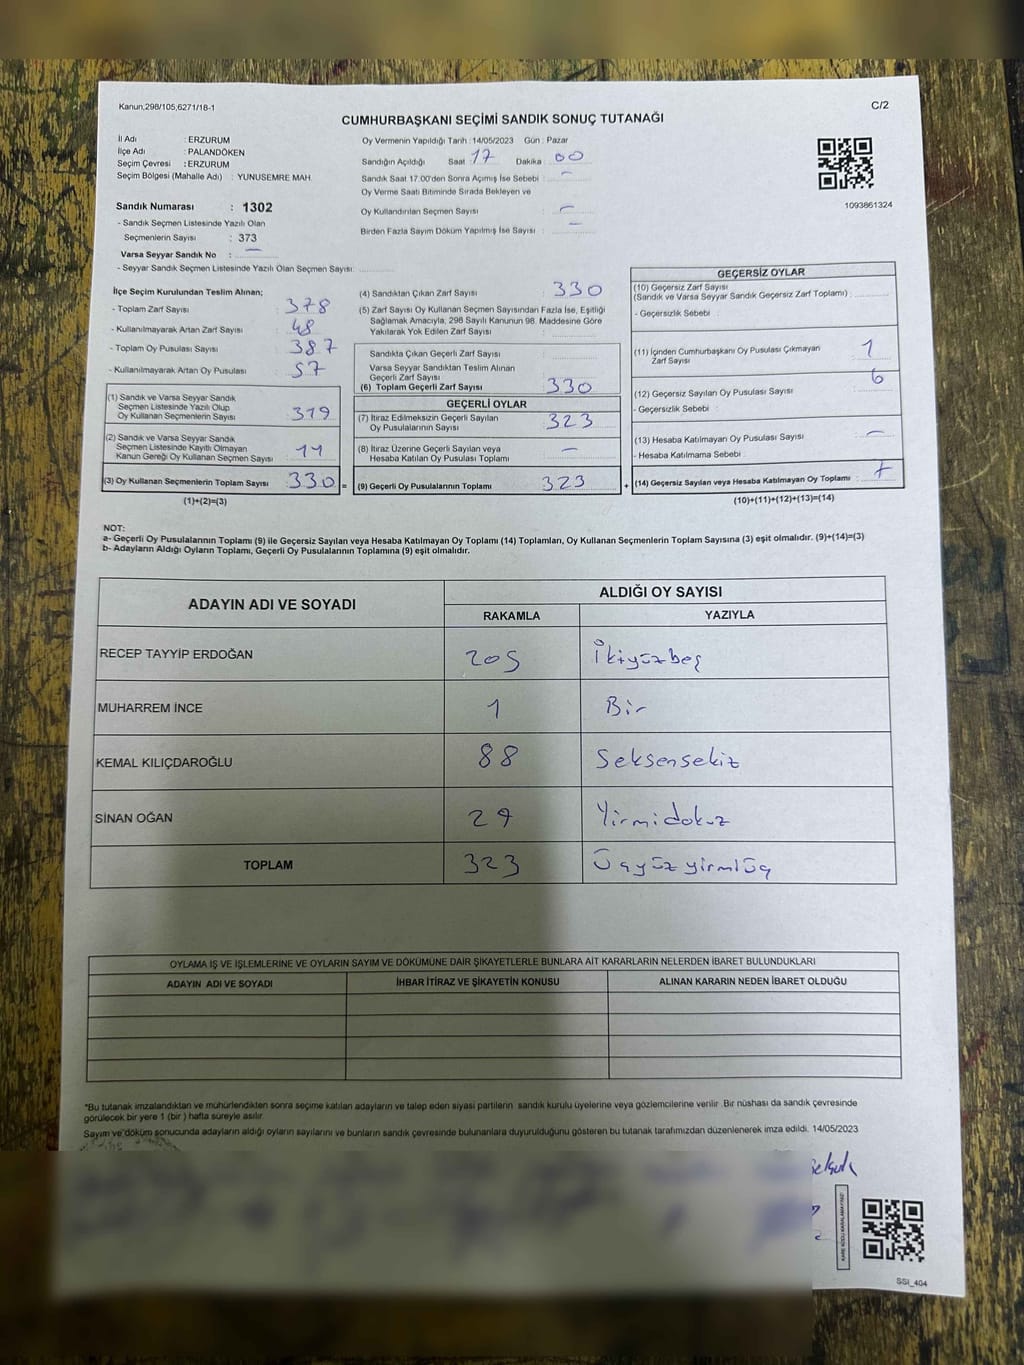 Kanun,298/105,6271/18-1
C/2
CUMHURBAŞKANI SEÇİMİ SANDIK SONUÇ TUTANAĞI
İl Adı : ERZURUM
İlçe Adı : PALANDÖKEN
Seçim Çevresi : ERZURUM
Seçim Bölgesi (Mahalle Adı) : YUNUSEMRE MAH.
Sandık Numarası : 1302
- Sandık Seçmen Listesinde Yazılı Olan
Seçmenlerin Sayısı : 373
Varsa Seyyar Sandık No : —
- Seyyar Sandık Seçmen Listesinde Yazılı Olan Seçmen Sayısı:
Oy Vermenin Yapıldığı Tarih : 14/05/2023 Gün : Pazar
Sandığın Açıldığı Saat 17 Dakika : 00
Sandık Saat 17.00'den Sonra Açımış İse Sebebi : —
Oy Verme Saati Bitiminde Sırada Bekleyen ve
Oy Kullandırılan Seçmen Sayısı : —
Birden Fazla Sayım Döküm Yapılmış İse Sayısı : —
1093861324
İlçe Seçim Kurulundan Teslim Alınan;
- Toplam Zarf Sayısı : 378
- Kullanılmayarak Artan Zarf Sayısı : 48
- Toplam Oy Pusulası Sayısı : 387
- Kullanılmayarak Artan Oy Pusulası : 57
(1) Sandık ve Varsa Seyyar Sandık
Seçmen Listesinde Yazılı Olup
Oy Kullanan Seçmenlerin Sayısı : 319
(2) Sandık ve Varsa Seyyar Sandık
Seçmen Listesinde Kayıtlı Olmayan
Kanun Gereği Oy Kullanan Seçmen Sayısı : 11
(3) Oy Kullanan Seçmenlerin Toplam Sayısı : 330 =
(1)+(2)=(3)
(4) Sandıktan Çıkan Zarf Sayısı : 330
(5) Zarf Sayısı Oy Kullanan Seçmen Sayısından Fazla İse, Eşitliği
Sağlamak Amacıyla, 298 Sayılı Kanunun 98. Maddesine Göre
Yakılarak Yok Edilen Zarf Sayısı :
Sandıkta Çıkan Geçerli Zarf Sayısı :
Varsa Seyyar Sandıktan Teslim Alınan
Geçerli Zarf Sayısı :
(6) Toplam Geçerli Zarf Sayısı : 330
GEÇERLİ OYLAR
(7) İtiraz Edilmeksizin Geçerli Sayılan
Oy Pusulalarının Sayısı : 323
(8) İtiraz Üzerine Geçerli Sayılan veya
Hesaba Katılan Oy Pusulası Toplamı : —
(9) Geçerli Oy Pusulalarının Toplamı : 323 +
GEÇERSİZ OYLAR
(10) Geçersiz Zarf Sayısı
(Sandık ve Varsa Seyyar Sandık Geçersiz Zarf Toplamı) :
- Geçersizlik Sebebi :
(11) İçinden Cumhurbaşkanı Oy Pusulası Çıkmayan
Zarf Sayısı : 1
(12) Geçersiz Sayılan Oy Pusulası Sayısı : 6
- Geçersizlik Sebebi :
(13) Hesaba Katılmayan Oy Pusulası Sayısı : —
- Hesaba Katılmama Sebebi :
(14) Geçersiz Sayılan veya Hesaba Katılmayan Oy Toplamı : 7
(10)+(11)+(12)+(13)=(14)
NOT:
a- Geçerli Oy Pusulalarının Toplamı (9) ile Geçersiz Sayılan veya Hesaba Katılmayan Oy Toplamı (14) Toplamları, Oy Kullanan Seçmenlerin Toplam Sayısına (3) eşit olmalıdır. (9)+(14)=(3)
b- Adayların Aldığı Oyların Toplamı, Geçerli Oy Pusulalarının Toplamına (9) eşit olmalıdır.
ADAYIN ADI VE SOYADI
ALDIĞI OY SAYISI
RAKAMLA YAZIYLA
RECEP TAYYİP ERDOĞAN 205 İkiyüzbeş
MUHARREM İNCE 1 Bir
KEMAL KILIÇDAROĞLU 88 Seksensekiz
SİNAN OĞAN 29 Yirmidokuz
TOPLAM 323 Üçyüzyirmiüç
OYLAMA İŞ VE İŞLEMLERİNE VE OYLARIN SAYIM VE DÖKÜMÜNE DAİR ŞİKAYETLERLE BUNLARA AİT KARARLARIN NELERDEN İBARET BULUNDUKLARI
ADAYIN ADI VE SOYADI İHBAR İTİRAZ VE ŞİKAYETİN KONUSU ALINAN KARARIN NEDEN İBARET OLDUĞU
*Bu tutanak imzalandıktan ve mühürlendikten sonra seçime katılan adayların ve talep eden siyasi partilerin sandık kurulu üyelerine veya gözlemcilerine verilir. Bir nüshası da sandık çevresinde
görülecek bir yere 1 (bir) hafta süreyle asılır.
Sayım ve döküm sonucunda adayların aldığı oyların sayılarını ve bunların sandık çevresinde bulunanlara duyurulduğunu gösteren bu tutanak tarafımızdan düzenlenerek imza edildi. 14/05/2023
SSI_404